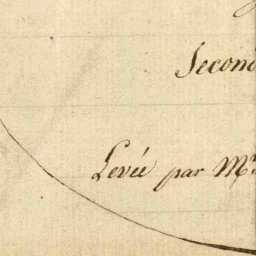 Second
Levée par Mr